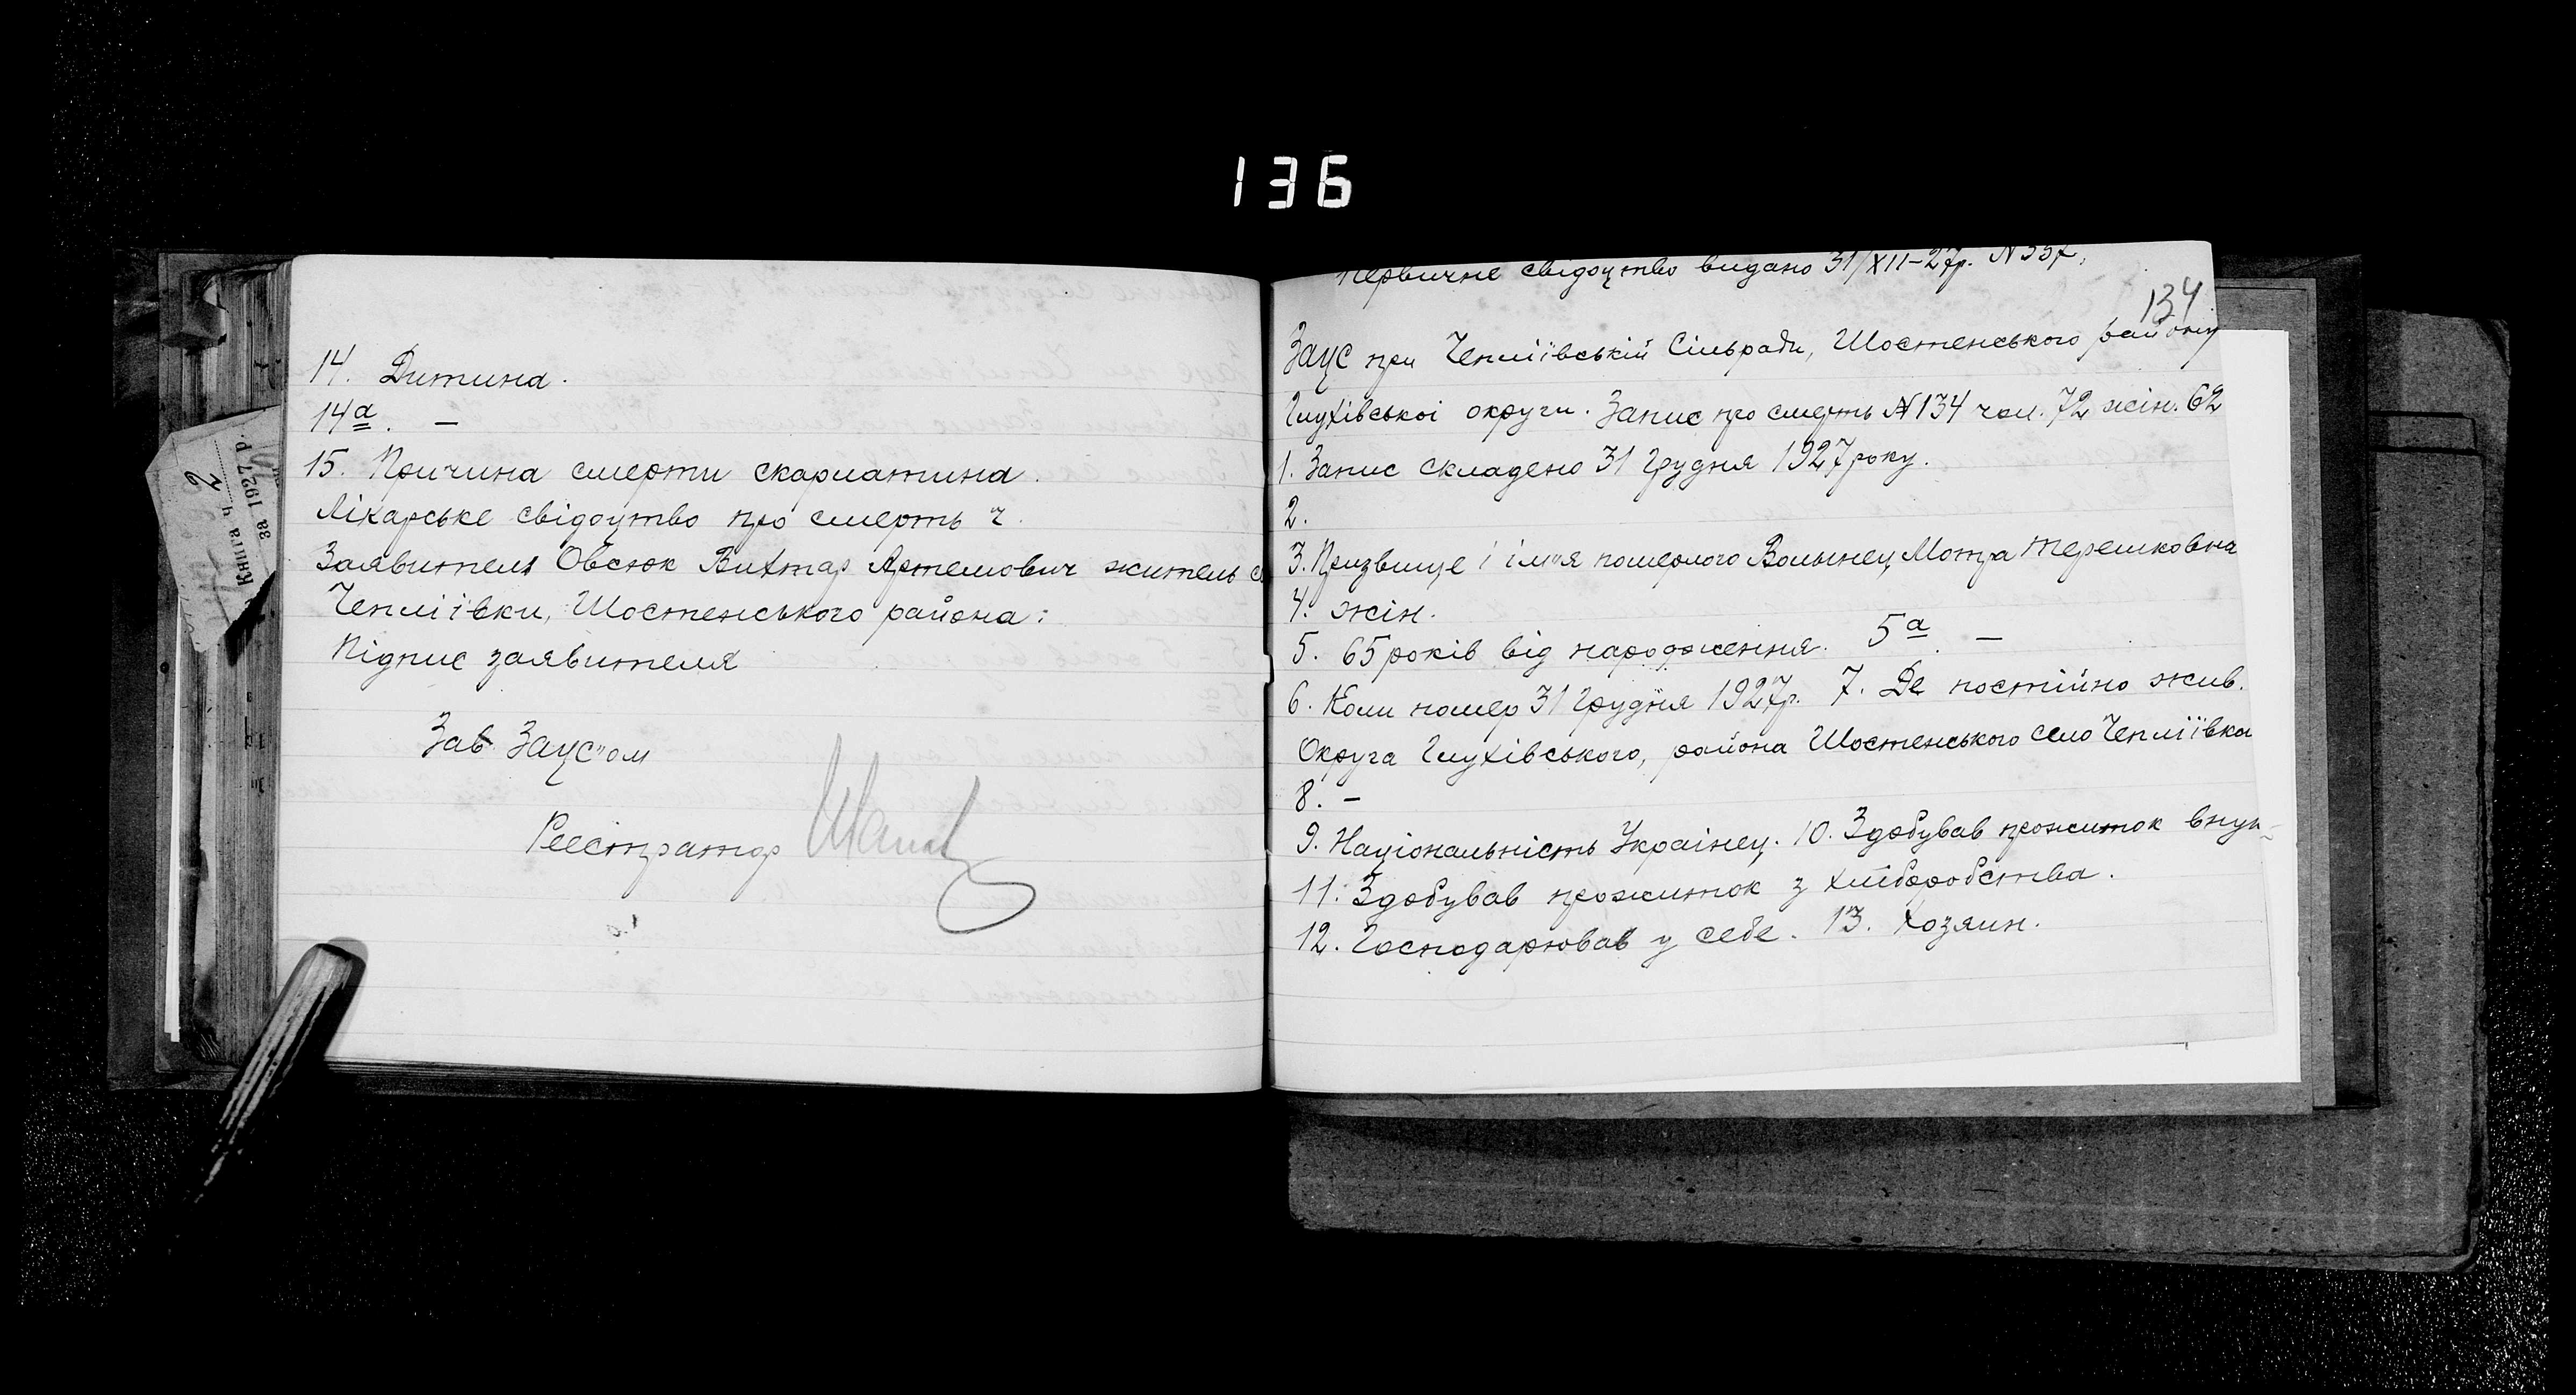 136
14. Дитина.
14а. —
15. Причина смерти скарлатина.
Лікарське свідоцтво про смерть ч.
Заявителя Овсюк Вихтар Артемович житель с
Чепліївки, Шостенського района:
Підпис заявителя
Зав Зацс"ом
Реєстратор
Книга ч. 2
за 1927 р.
Первичне свідоцтво видано 31/XII-27р. N 337,
134
Зацс при Чепліївській Сільради, Шостенського району
Глухівської округи. Запис про смерть № 134 чол. 72 жін. 62
1. Запис складено 31 Грудня 1927 року.
2.
3. Призвище і ім"я померлого Волынец Мотра Терешковна
4. жін.
5. 65 років від народження. 5а. —
6. Коли помер 31 Грудня 1927р. 7. Де постійно жив.
Округа Глухівського, района Шостенського село Чепліївка
8. -
9. Національність Українец. 10. Здобував прожиток
11. Здобував прожиток з хліборобства.
12. Господарював у себе. 13. Хозяин.